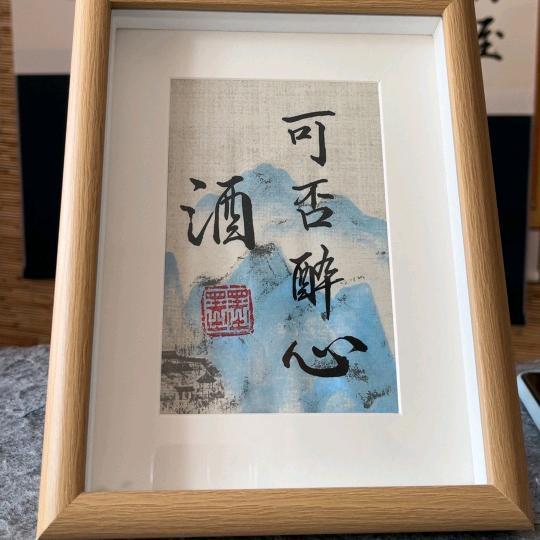 可否醉心
酒
至